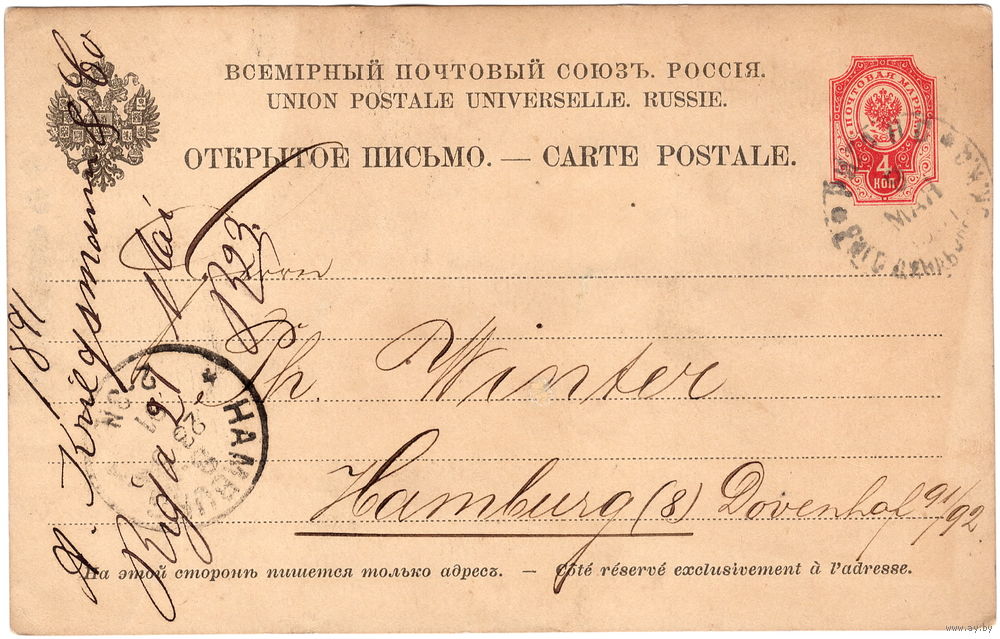 ВСЕМІРНЫЙ ПОЧТОВЫЙ СОЮЗЪ. РОССІЯ.
UNION POSTALE UNIVERSELLE. RUSSIE.
ОТКРЫТОЕ ПИСЬМО. — CARTE POSTALE.
ПОЧТОВАЯ МАРКА
4
КОП
МАЯ
Ph. Winter
Hamburg (8) Dovenhof 91/92
A. Kriegsmann & Co
Riga 29 Mai 1891
1223.
HAMBURG
На этой сторонѣ пишется только адресъ. — Côté réservé exclusivement à l'adresse.
www.ay.by